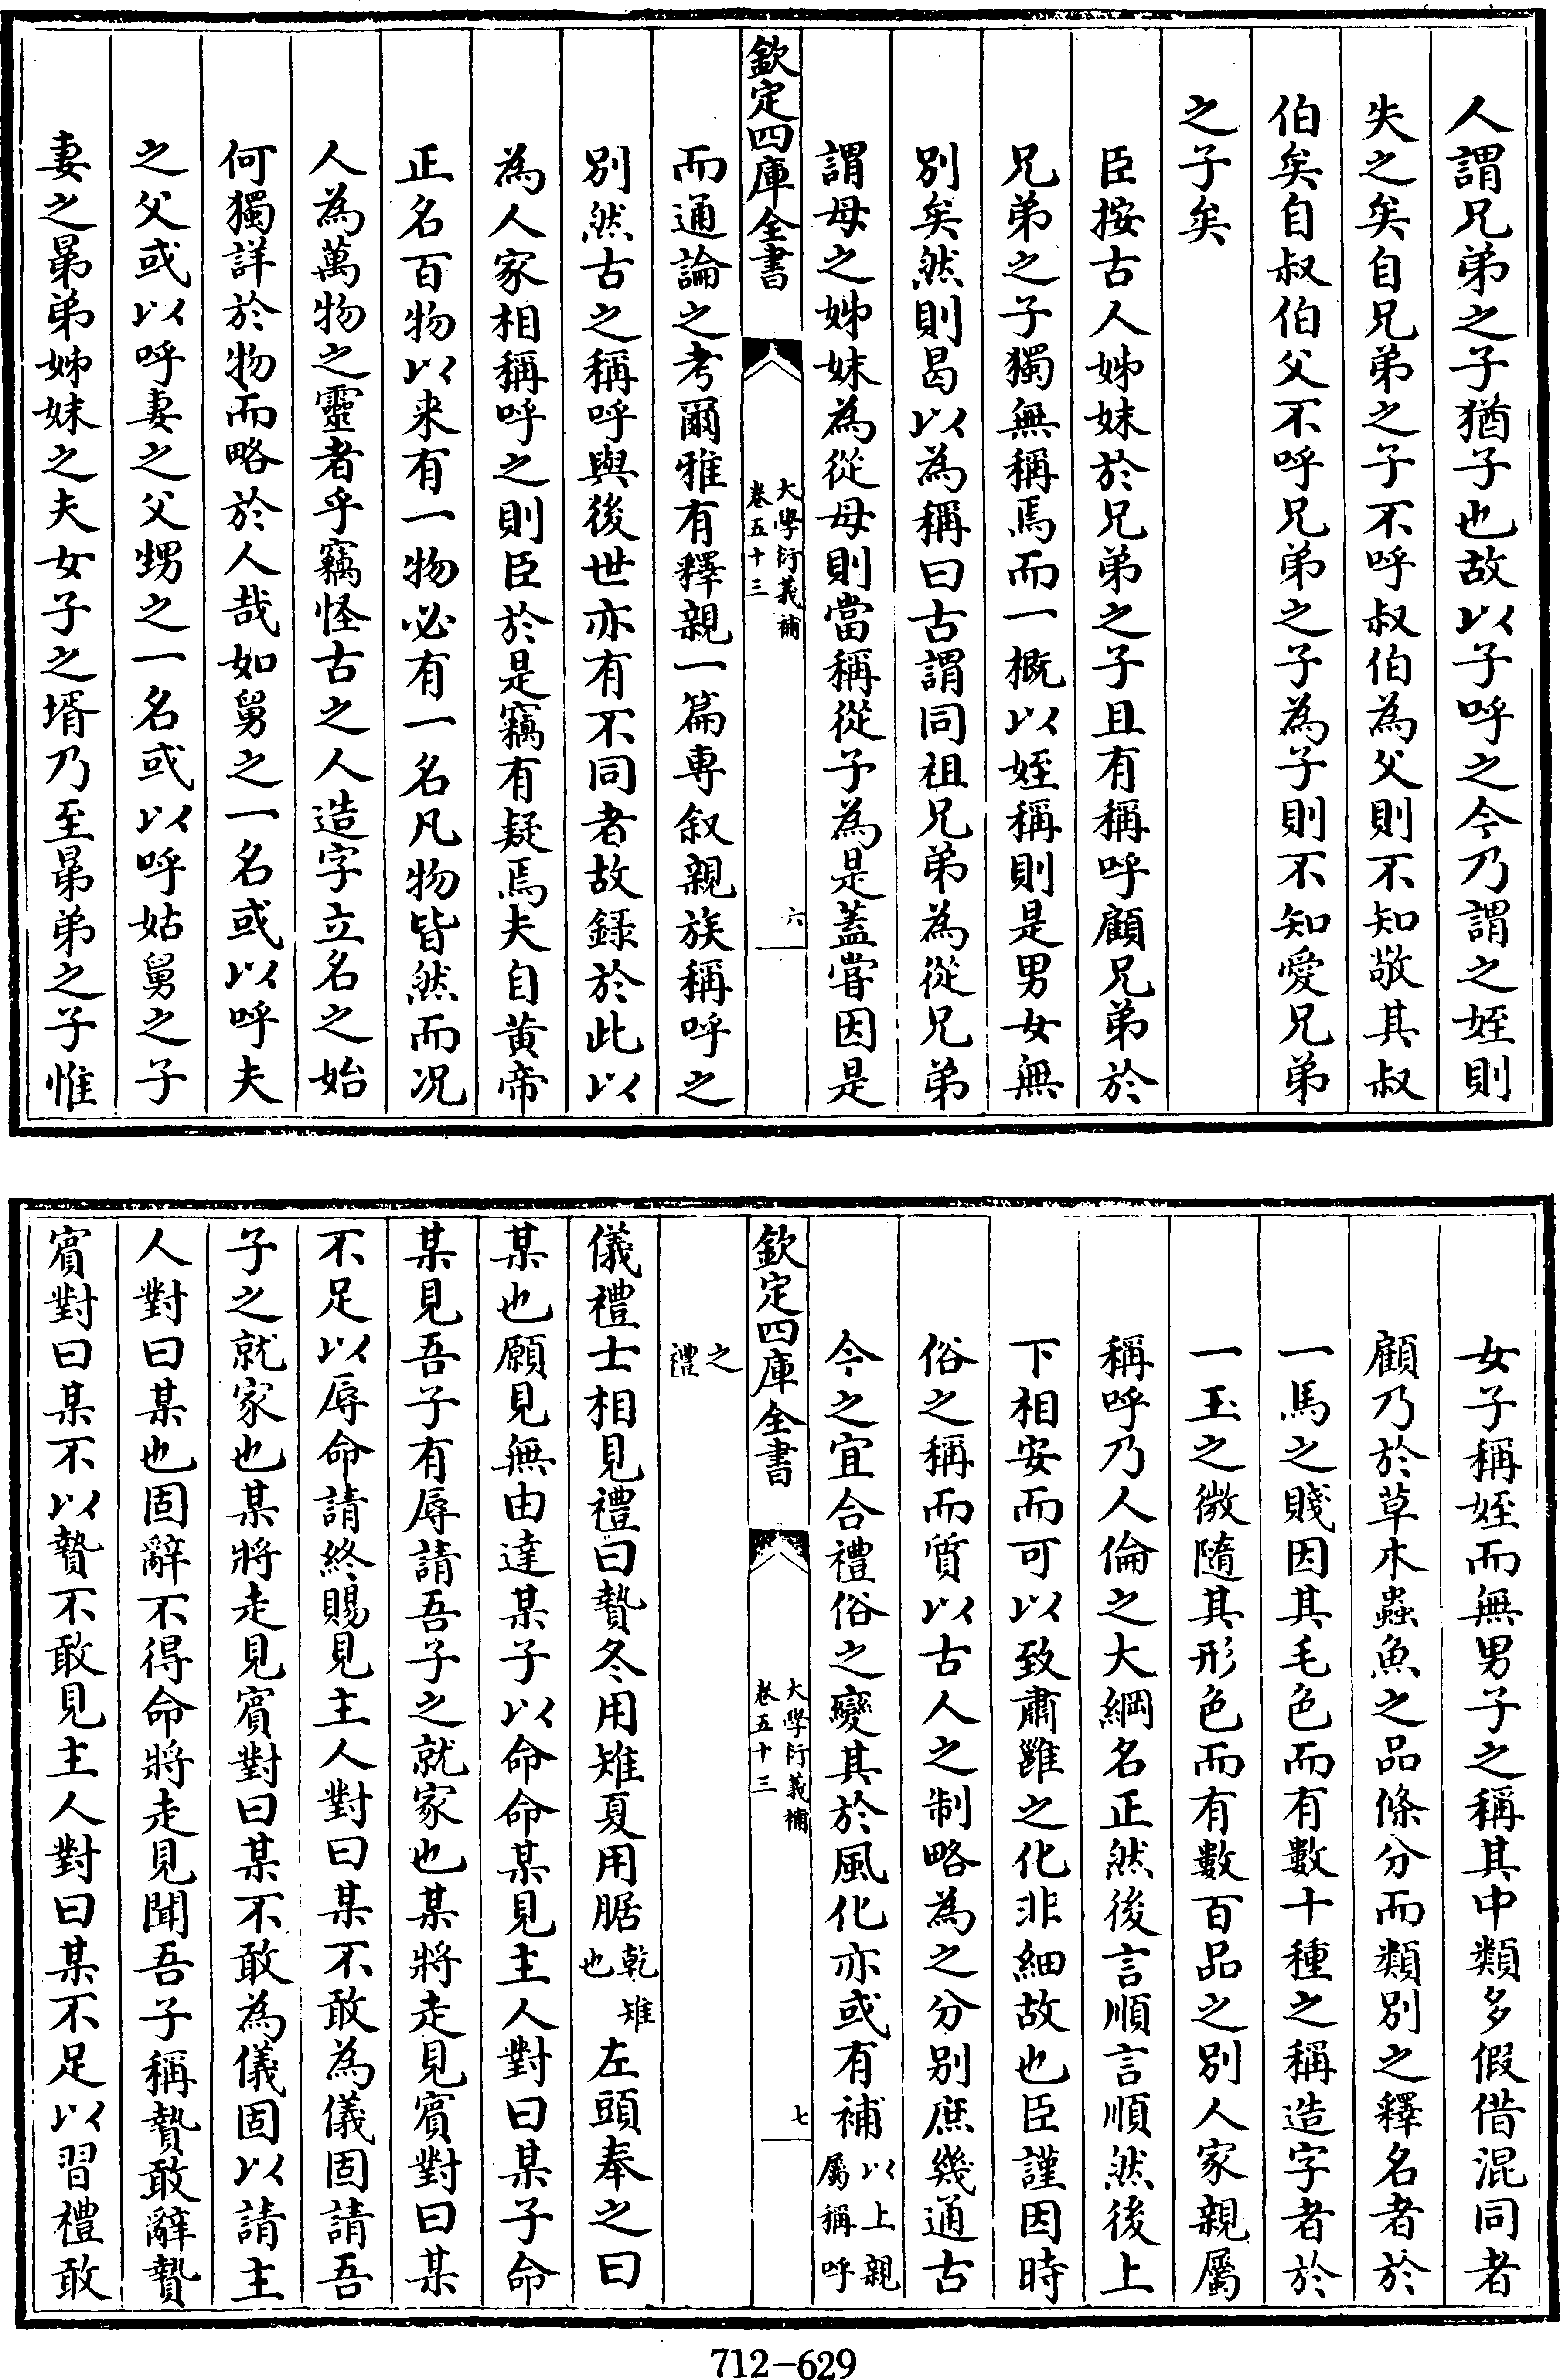 人謂兄弟之子猶子也故以子呼之今乃謂之姪則
失之矣自兄弟之子不呼叔伯為父則不知敬其叔
伯矣自叔伯父不呼兄弟之子為子則不知愛兄弟
之子矣
臣按古人姊妹於兄弟之子且有稱呼顧兄弟於
兄弟之子獨無稱焉而一概以姪稱則是男女無
別矣然則曷以為稱曰古謂同祖兄弟為從兄弟
謂母之姊妹為從母則當稱從子為是蓋嘗因是
欽定四庫全書
大學衍義補
卷五十三
六
而通論之考爾雅有釋親一篇専叙親族稱呼之
別然古之稱呼與後世亦有不同者故録於此以
為人家相稱呼之則臣於是竊有疑焉夫自黄帝
正名百物以来有一物必有一名凡物皆然而况
人為萬物之靈者乎竊怪古之人造字立名之始
何獨詳於物而略於人哉如舅之一名或以呼夫
之父或以呼妻之父甥之一名或以呼姑舅之子
妻之晜弟姊妹之夫女子之壻乃至晜弟之子惟
女子稱姪而無男子之稱其中類多假借混同者
顧乃於草木蟲魚之品條分而類別之釋名者於
一馬之賤因其毛色而有數十種之稱造字者於
一玉之微隨其形色而有數百品之別人家親屬
稱呼乃人倫之大綱名正然後言順言順然後上
下相安而可以致肅雝之化非細故也臣謹因時
俗之稱而質以古人之制略為之分別庶幾通古
今之宜合禮俗之變其於風化亦或有補以上親
屬稱呼
欽定四庫全書
大學衍義補
卷五十三
七
之
禮
儀禮士相見禮曰贄冬用雉夏用腒乾雉
也左頭奉之曰
某也願見無由達某子以命命某見主人對曰某子命
某見吾子有辱請吾子之就家也某將走見賓對曰某
不足以辱命請終賜見主人對曰某不敢為儀固請吾
子之就家也某將走見賓對曰某不敢為儀固以請主
人對曰某也固辭不得命將走見聞吾子稱贄敢辭贄
賓對曰某不以贄不敢見主人對曰某不足以習禮敢
712-629